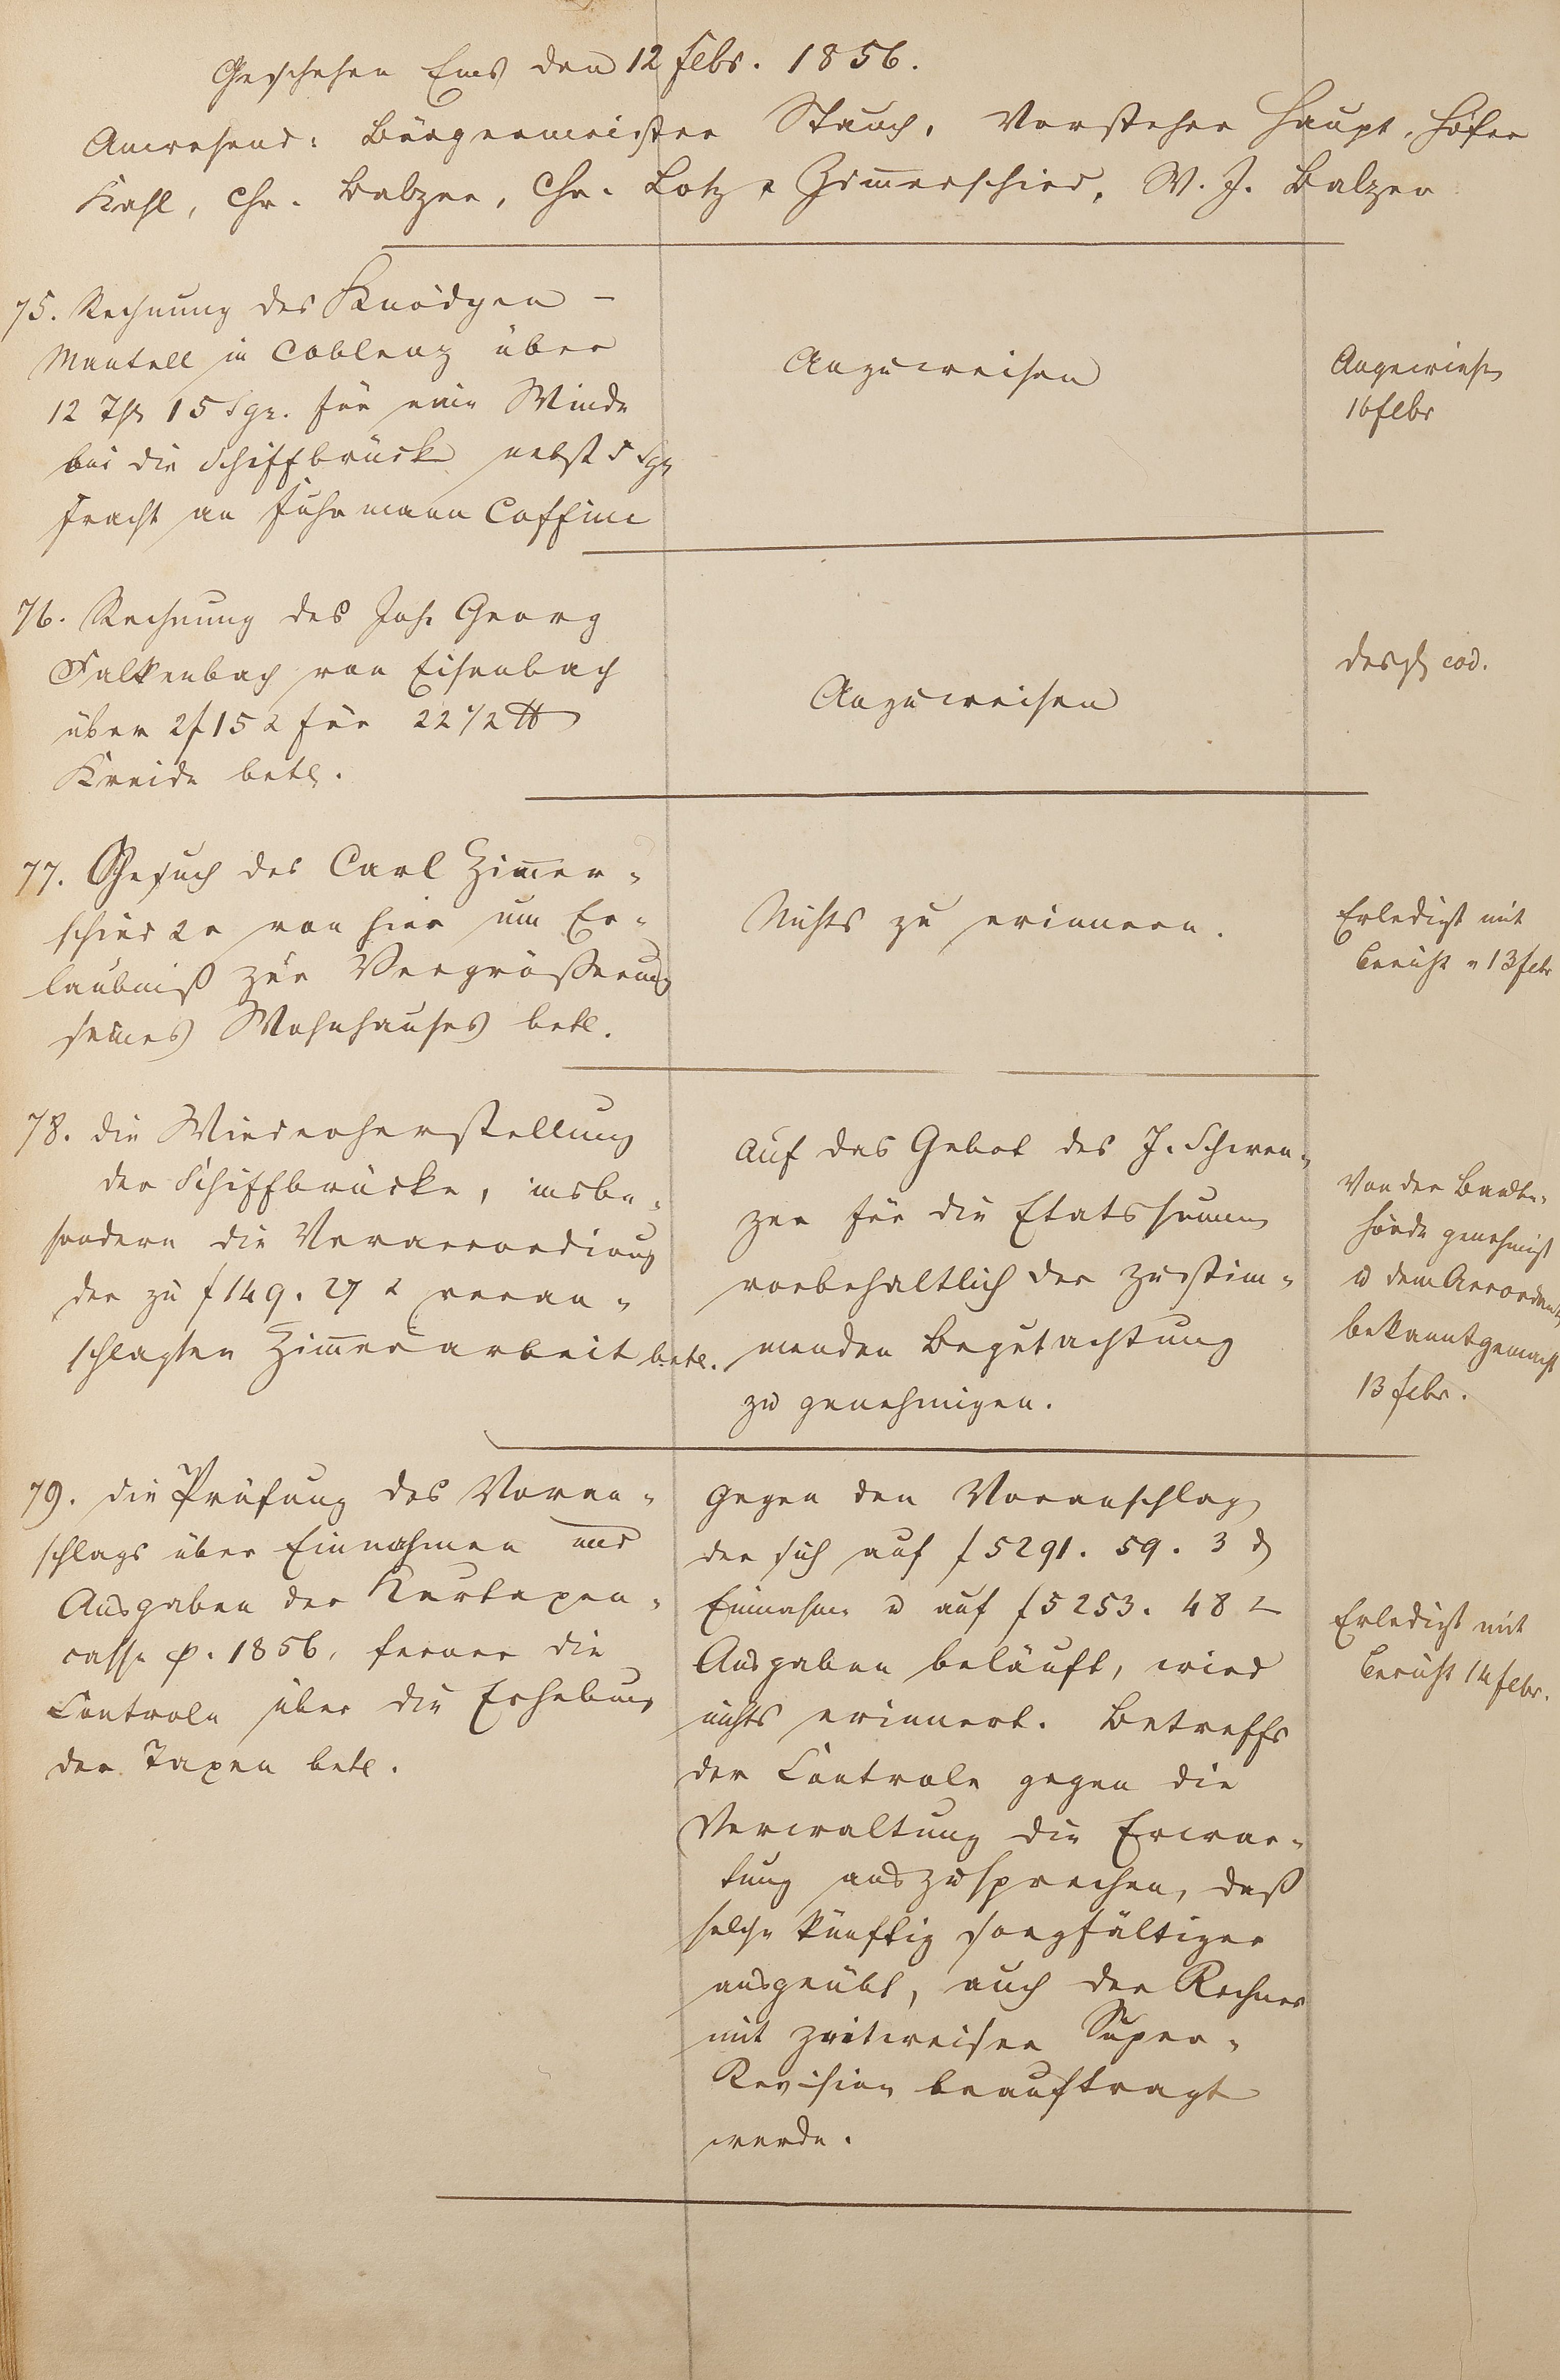 Geschehen Ems den 12 Febr. 1856.
Anwesend: Bürgermeister Stauch, Vorsteher Haupt, Höfer
Kahl, Chr. Balzer, Chr. Lotz, Zimerschied, W. J. Balzer
75. Rechnung des Knödgen –
Mantell in Coblenz über
12 Thl 15 Sgr. für eine Winde
bei die Schiffbrücke nebst 5 Sgr
Fracht an Fuhrmann Caffine
Anzuweisen
Angewiesen
16 Febr
76. Rechnung des Joh. Georg
Falkenbach von Eisenbach
über 2 f 15 x für 22 1/2 ℔
Kreide betr.
Anzuweisen
desgl eod.
77. Gesuch des Carl Zimer-
schied 2r von hier um Er-
laubniß zur Vergrößerung
seines Wohnhauses betr.
Nichts zu erinnern.
Erledigt mit
Bericht v 13 Febr
78. die Wiederherstellung
der Schiffbrücke, insbe-
sondere die Veraccordirung
der zu f 149. 27 x veran-
schlagten Zimerarbeit betr.
Auf das Gebot des J. Schwen-
zer für die Etatssumme
vorbehaltlich der zustim-
menden Begutachtung
zu genehmigen.
Von der Baube-
hörde genehmigt
u dem Accordanten
bekanntgemacht
13 Febr.
79. die Prüfung des Voran-
schlags über Einnahmen und
Ausgaben der Kurtaxen-
casse p. 1856, ferner die
Controle über die Erhebung
der Taxen betr.
Gegen den Voranschlag
der sich auf f 5291. 59. 3 d
Einnahme u auf f 5253. 48 x
Ausgaben beläuft, wird
nichts erinnert. Betreffs
der Controle gegen die
Verwaltung die Erwar-
tung auszusprechen, daß
solche künftig sorgfältiger
ausgeübt, auch der Rechner
mit zeitweiser Super-
Revision beauftragt
werde.
Erledigt mit
Bericht 14 Febr.